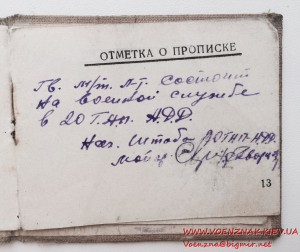 ОТМЕТКА О ПРОПИСКЕ
Гв. мл. лт. состоит
на военной службе
в 20 Гв. Ап. АДД.
Нач. Штаба 20 ГАП АДД
майор
13
WWW.VOENZNAK.KIEV.UA
Voenzna@bigmir.net